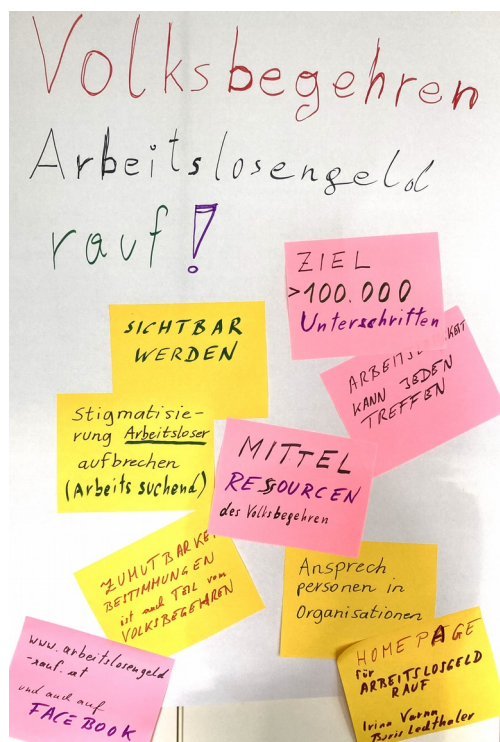 Volksbegehren
Arbeitslosengeld
rauf!
ZIEL
>100.000
Unterschriften
SICHTBAR
WERDEN
KANN JEDEN
TREFFEN
Stigmatisie-
rung Arbeitsloser
aufbrechen
(Arbeits suchend)
MITTEL
RESSOURCEN
des Volksbegehren
ZUMUTBARKEI
BESTIMMUNGEN
ist auch TEIL vom
VOLKSBEGEHREN
Ansprech
personen in
Organisationen
www.arbeitslosengeld
-rauf.at
und auch auf
FACEBOOK
HOMEPAGE
für
ARBEITSLOSGELD
RAUF
Irina Varna
Boris Lechthaler